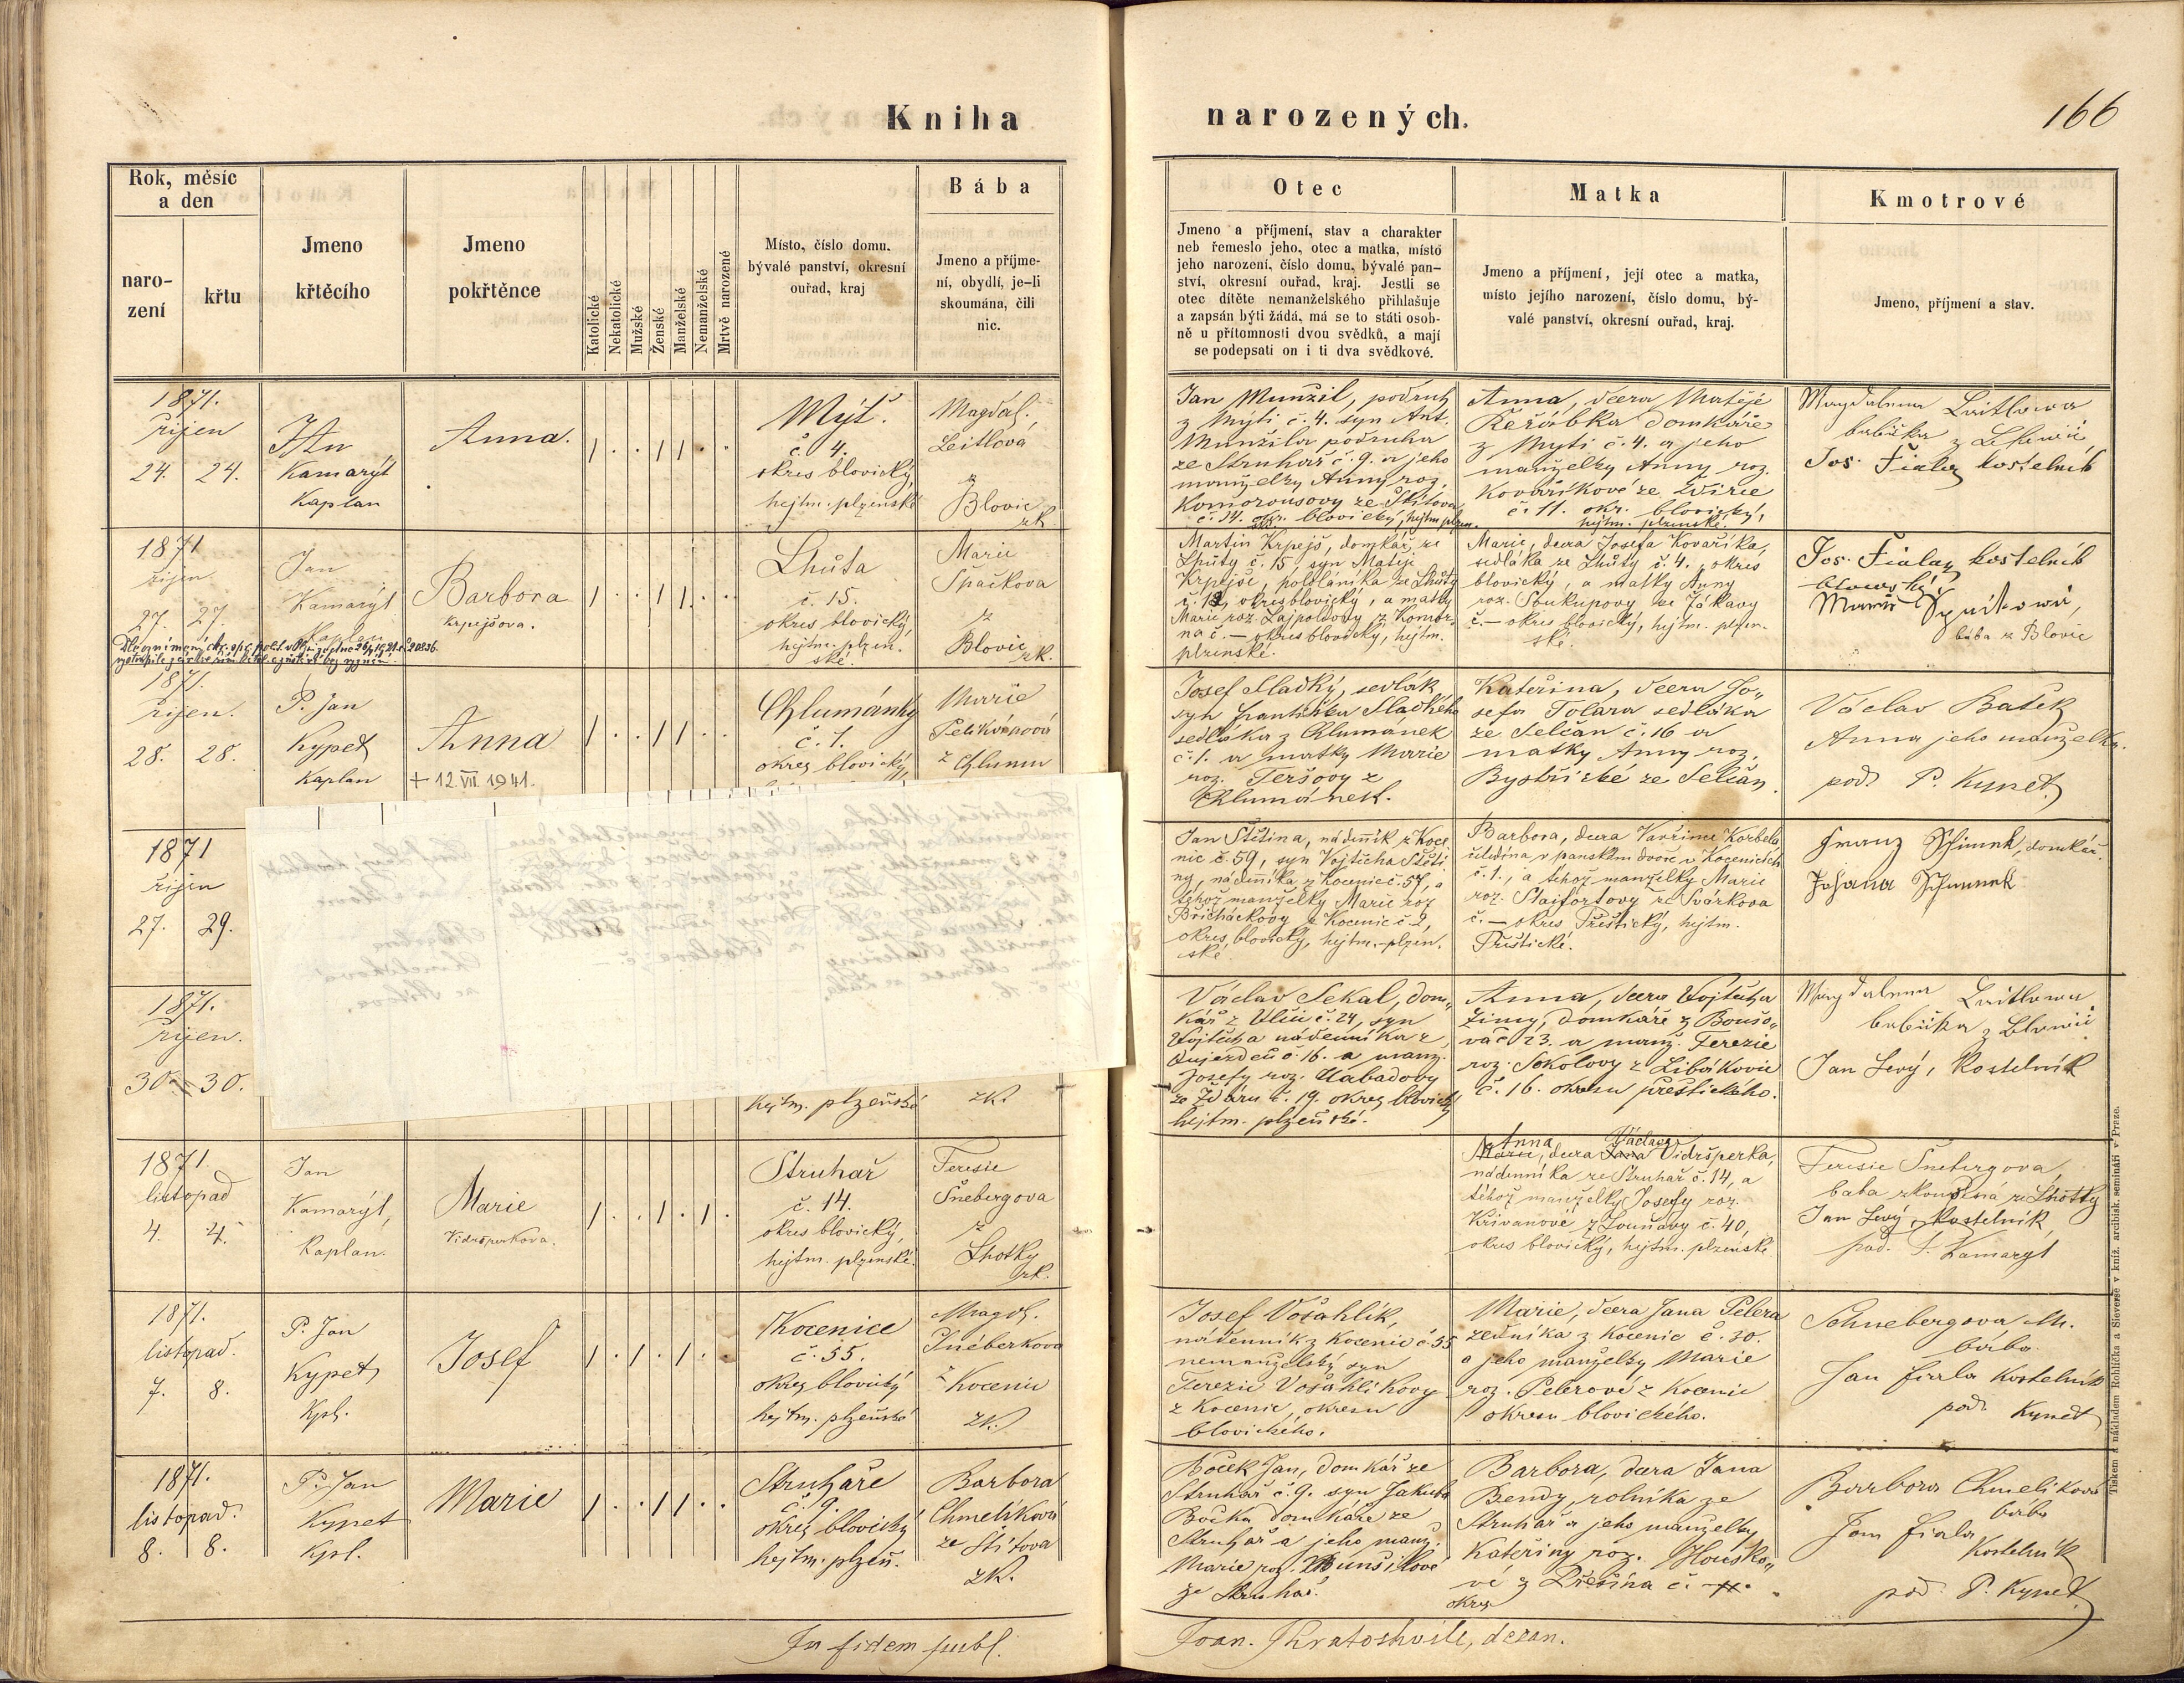 Kniha narozených.
166
Rok, měsíc
a den
naro-
zení
křtu
Jmeno
křtěcího
Jmeno
pokřtěnce
Katolické
Nekatolické
Mužské
Ženské
Manželské
Nemanželské
Mrtvě narozené
Místo, číslo domu,
bývalé panství, okresní
ouřad, kraj
Bába
Jmeno a příjme-
ní, obydlí, je-li
skoumána, čili
nic.
Otec
Jmeno a příjmení, stav a charakter
neb řemeslo jeho, otec a matka, místo
jeho narození, číslo domu, bývalé pan-
ství, okresní ouřad, kraj. Jestli se
otec dítěte nemanželského přihlašuje
a zapsán býti žádá, má se to státi osob-
ně u přítomnosti dvou svědků, a mají
se podepsati on i ti dva svědkové.
Matka
Jmeno a příjmení, její otec a matka,
místo jejího narození, číslo domu, bý-
valé panství, okresní ouřad, kraj.
Kmotrové
Jmeno, příjmení a stav.
1871.
říjen
24. 24.
Jan
Kamarýt
Kaplan
Anna.
Mýť.
č. 4.
okres blovický,
hejtm. plzenské
Magdal.
Leitlová
z
Blovic
zk.
Jan Munžil, podruh
z Mýti č. 4. syn Ant.
Munžila podruha
ze Struhař č. 9. a jeho
manželky Anny roz.
Komorousovy ze Štítova
č. 14. okr. blovický, hejtm. plzen.
Anna, dcera Matěje
Řeřábka domkáře
z Mýti č. 4. a jeho
manželky Anny roz.
Kovaříkové ze Zdírce
č. 11. okr. blovický,
hejtm. plzenské.
Magdalena Laitlowa
babička z Blowic
Jos. Fiala kostelník
1871
říjen
27. 27.
Jan
Kamarýt
Kaplan
Barbora
Krpejšova.
Lhůta
č. 15.
okres blovický,
hejtm. plzen-
ské.
Marie
Špačkova
z
Blovic
zk.
Martin Krpejš, domkář ze
Lhůty č. 15, syn Matěje
Krpejše, pololáníka ze Lhůty
okres blovický, a matky
Marie roz.
na č. — okres blovický, hejtm.
plzenské.
Marie, dcera Josefa Kovaříka,
sedláka ze Lhůty č. 4. okres
blovický, a matky Anny
roz. Soukupovy ze Žákavy
č. — okres blovický, hejtm. plzen-
ské.
Jos. Fiala kostelník
blowský
Marie Špačkowá,
bába z Blovic
1871.
říjen.
28. 28.
P. Jan
Kypet
Kaplan
Anna
+ 12. VII. 1941.
Chlumánky
č. 1.
okres blovický,
Marie
Pelikánová
z Chlumu
Josef Sladký, sedlák,
syn Františka Sladkého
sedláka z Chlumánek
č. 1. a matky Marie
roz. Teršovy z
Chlumánek.
Kateřina, dcera Jo-
sefa Tolara sedláka
ze Seleàn č. 16 a
matky Anny roz.
Bystřické ze Selčan.
Václav Bašek
Anna jeho manželka.
pod. P. Kypet
1871
říjen
27. 29.
Jan Štětina, nádenník z Koce-
nic č. 59, syn Vojtěcha Štěti-
ny, nádenníka z Kocenic č. 57, a
téhož manželky Marie roz.
Břicháčkovy z Kocenic č. 2,
okres blovický, hejtm. plzen-
ské.
Barbora, dcera Vavřince Korbela,
čeledína v panském dvoře v Kocenicích
č. 1., a téhož manželky Marie
roz. Štajfortovy ze Svárkova
č. — okres Přeštický, hejtm.
Přeštické.
Franz domkář.
Johana
1871.
říjen.
30. 30.
hejtm. plzeňské
zk.
Václav Sekal, dom-
kář z Vlčic č. 24, syn
Vojtěcha nádenníka z
Aujezdce č. 16. a manž.
Josefy roz. Habadovy
ze Ždáru č. 19. okres blovický
hejtm. plzeňské.
Anna, dcera Vojtěcha
Zimy, domkáře z Boušo-
vac 23. a manž. Terezie
roz. Sokolovy z Libákovic
č. 16. okresu přeštického.
Magdalena Laitlowa
babička z Blowic
Jan Levý, kostelník
1871.
listopad
4. 4.
Jan
Kamarýt,
Kaplan.
Marie
Vidršperkova.
Struhař
č. 14.
okres blovický,
hejtm. plzenské.
Teresie
Šnebergova
z
Lhotky
zk.
Anna Václava
Marie, dcera Jana Vidršperka,
nádenníka ze Struhař č. 14, a
téhož manželky Josefy roz.
Křivanové z Louňavy č. 40,
okres blovický, hejtm. plzenské.
Teresie Šnebergová,
baba zkoušená ze Lhotky
Jan Levý, kostelník,
pod. P. Kamarýt
1871.
listopad.
7. 8.
P. Jan
Kypet,
Kpl.
Josef
Kocenice
č. 55.
okres blovický
hejtm. plzeňské
Magd.
Šnéberkova
z Kocenic
zk.
Josef Vošahlík,
nádenník z Kocenic č. 55
nemanželský syn
Terezie Vošahlíkovy
z Kocenic, okresu
blovického.
Marie, dcera Jana Pelera
zedníka z Kocenic č. 30.
a jeho manželky Marie
roz. Pelerové z Kocenic
okresu blovického.
Schnebergova M.
bába.
Jan Fiala kostelník
pod. Kypet
1871.
listopad.
8. 8.
P. Jan
Kypet
Kpl.
Marie
Struhaře
č. 9.
okres blovický
hejtm. plzeň.
Barbora
Chmelíková
ze Štítova
zk.
Boček Jan, domkář ze
Struhař č. 9. syn Jakuba
Bočka domkáře ze
Struhař a jeho manž.
Marie roz. Munšilové
ze Struhař.
Barbora, dcera Jana
Bendy, rolníka ze
Struhař a jeho manželky
Kateřiny roz. Housko-
vé z Přešína č.
okres
Barbora Chmelíková
bába
Jan Fiala
Kostelník
pod. P. Kypet
In fidem publ. Joan. Kratochvíle, decan.
Tiskem a nákladem Rohlíčka a Sieverse v kníž. arcibisk. semináři v Praze.